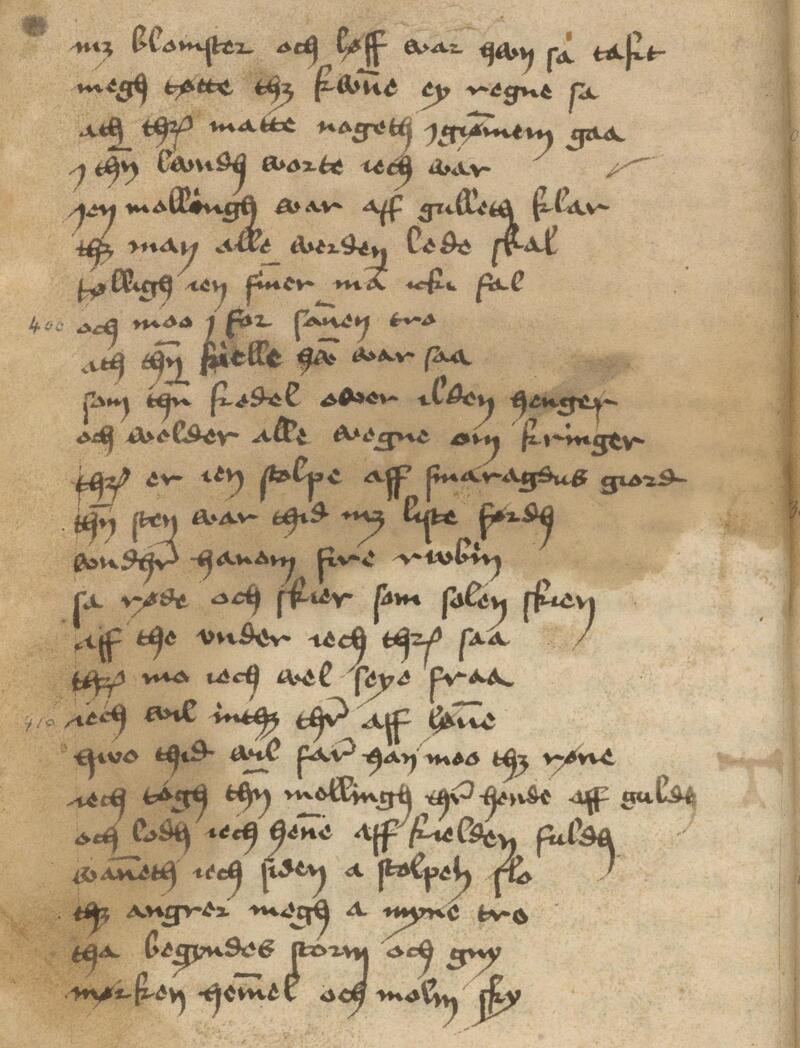 mz blomster och løff war hwn sa takt
megh tøtte thz kwñe ey regne sa
ath thr matte nogeth ȷgiøm̄em gaa
ȷ thn̄ lwndh worte iech war
ȷen mollingh war aff gulleth klar
thz man alle werden lede skal
tølligh ien sīner mā icki fal
400 och moo ȷ for san̄en tro
ath thn̄ kielle hā war saa
som thn̄ kedel ower ilden henger
och welder alle wegne om kringer
thr er ien stolpe aff smaragdus giord
thn̄ sten war thid mz liste førdh
wndhr̄ hanom fire rwbin
sa røde och skier som solen skien
aff the vnder iech thr saa
thr mo iech wel seye fraa
410 iech wil inthz thr̄ aff løn̄e
hwo thid wil far̄ han moo thz røne
iech togh thn̄ mollingh thr̄ hende aff guldh
och lodh iech hen̄e aff kielden fuldh
wan̄eth iech siden a stolpen slo
thz angrer megh a myne tro
tha begyndes storm och gny
mørken hem̄el och molm sky